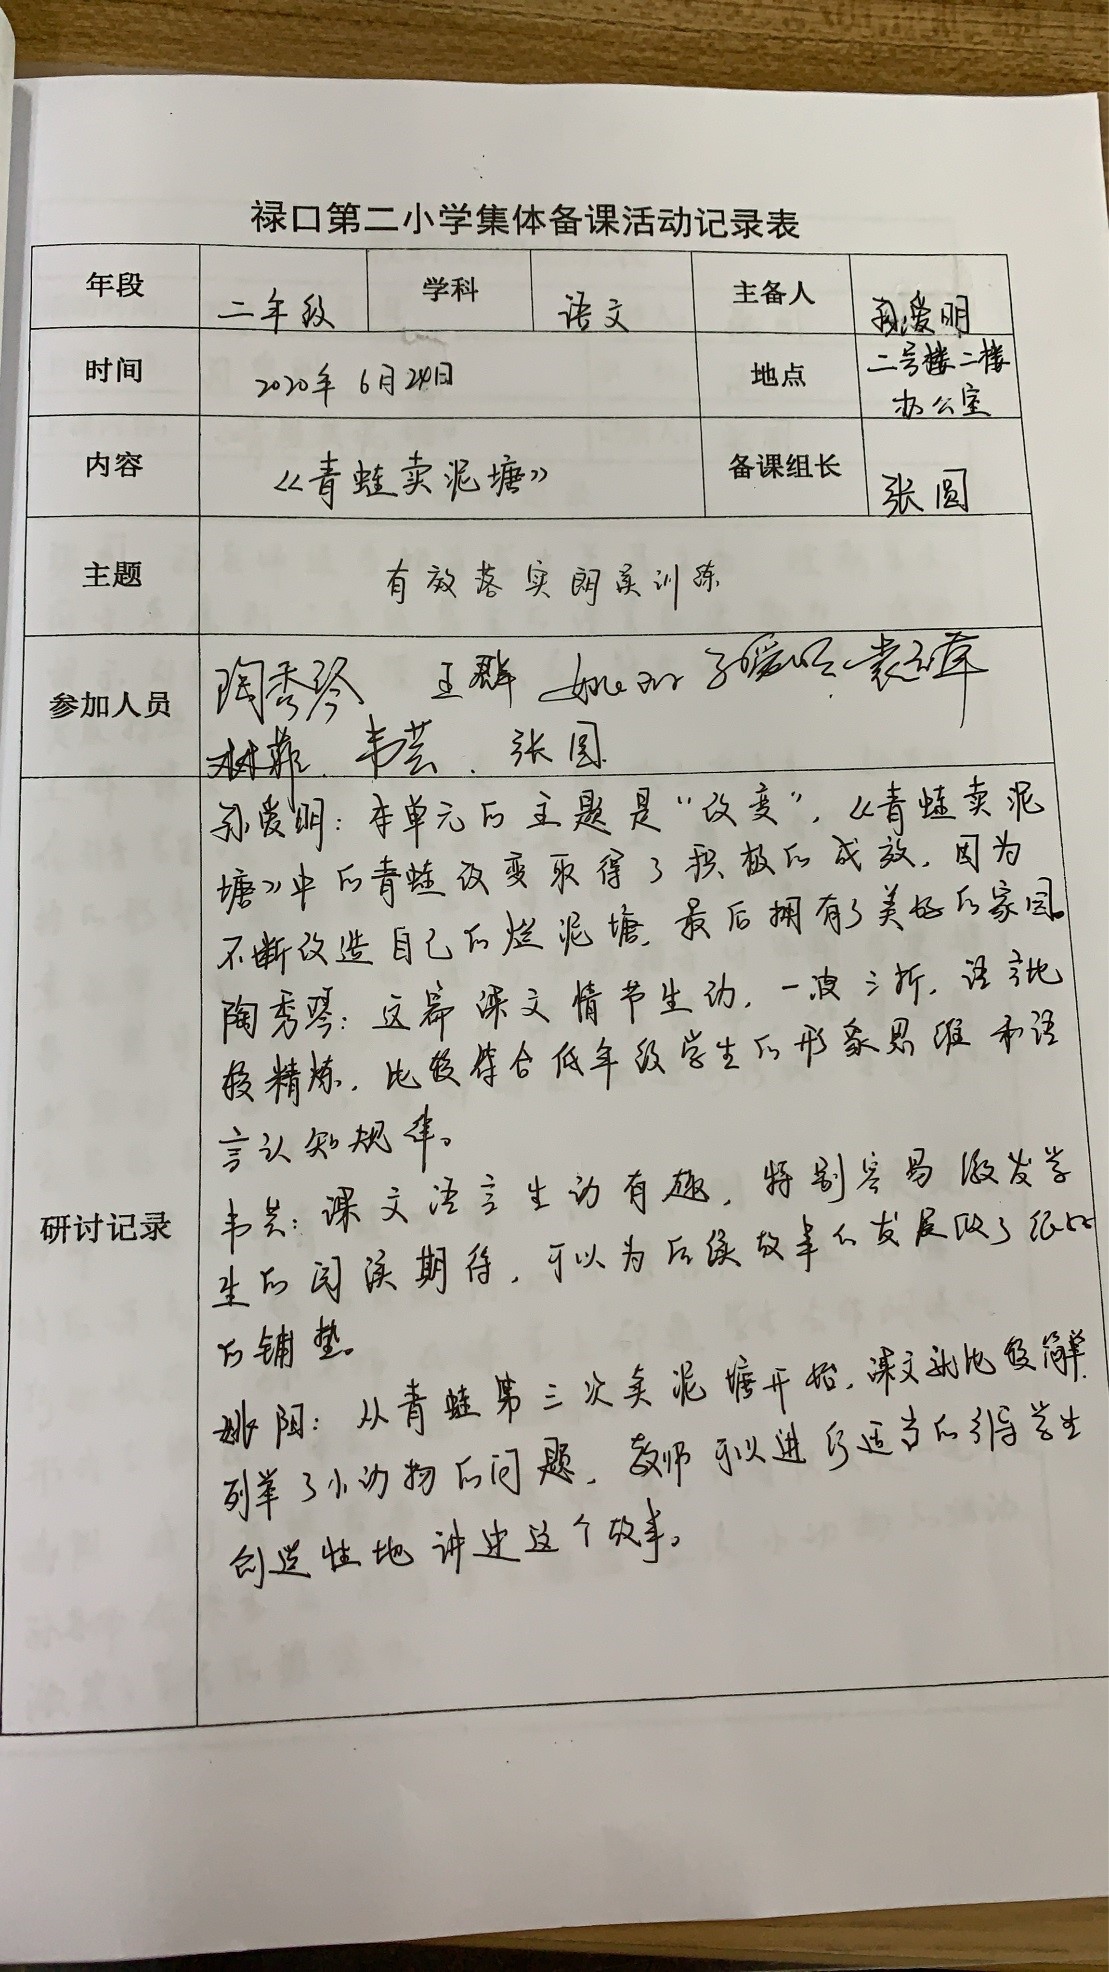 禄口第二小学集体备课活动记录表
年段 二年级 学科 语文 主备人 孙爱明
时间 2020年6月24日 地点 二号楼二楼
办公室
内容 《青蛙卖泥塘》 备课组长 张圆
主题 有效落实朗读训练
参加人员 陶秀琴 王群 姚阳 孙爱明
韦芸、张圆
研讨记录
孙爱明：本单元的主题是“改变”，《青蛙卖泥
塘》中的青蛙改变取得了积极的成效，因为
不断改造自己的烂泥塘，最后拥有了美好的家园。
陶秀琴：这篇课文情节生动，一波三折，语言比
较精炼，比较符合低年级学生的形象思维和语
言认知规律。
韦芸：课文语言生动有趣，特别容易激发学
生的阅读期待，可以为后续故事的发展做了很好
的铺垫。
姚阳：从青蛙第三次卖泥塘开始，课文就比较简单，
列举了小动物的问题，教师可以进行适当的引导学生
创造性地讲述这个故事。